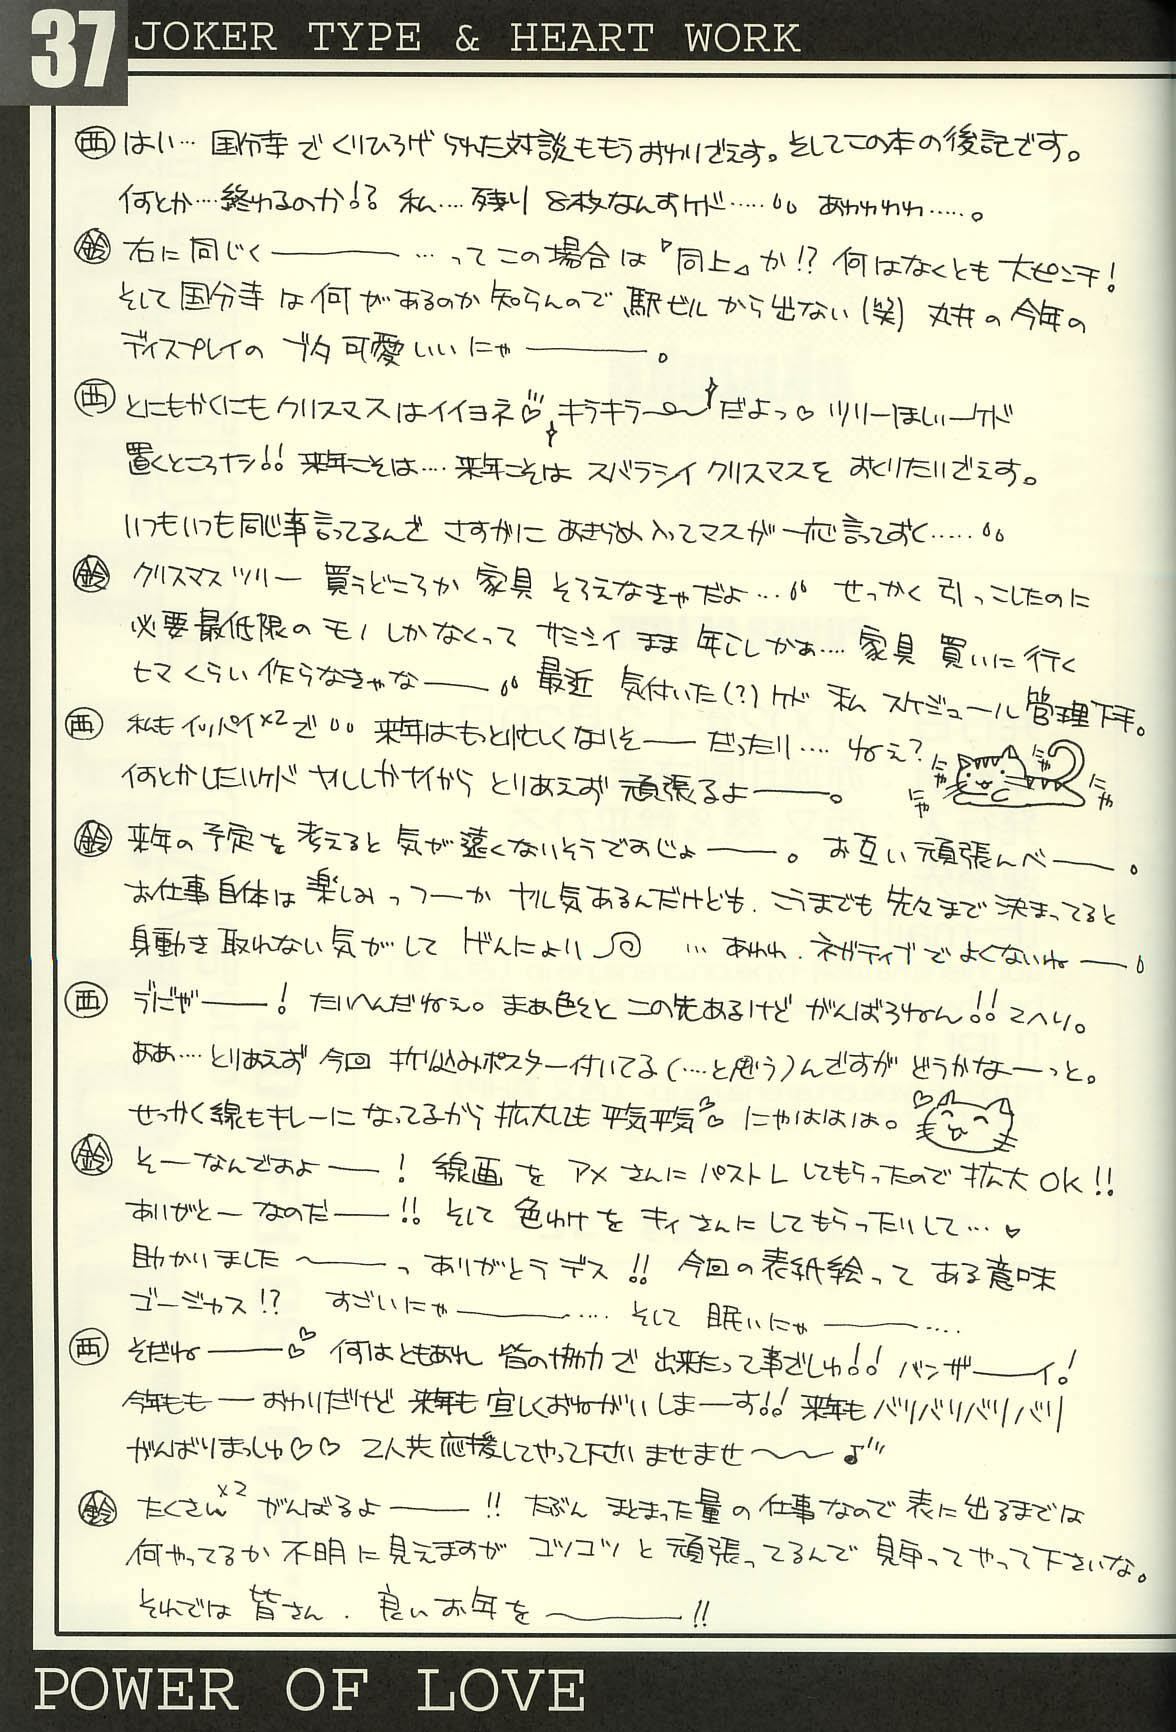 37 JOKER TYPE & HEART WORK
西 はい… 国分寺でくりひろげられた対談ももうおわりでえす。そしてこの本の後記です。
何とか…終わるのか!? 私…. 残り8枚なんすケド….. あわわわわ…..。
鈴 右に同じく――― …ってこの場合は『同上』か!? 何はなくとも大ピンチ!
そして国分寺は何があるのか知らんので駅ビルから出ない(笑) 丸井の今年の
ディスプレイのブタ可愛いいにゃ―――。
西 とにもかくにもクリスマスはイイヨネ♡ キラキラ〜だよっ♡ ツリーほしいーケド
置くところナシ!! 来年こそは…. 来年こそはスバラシイクリスマスをおくりたいでえす。
いつもいつも同じ事言ってるんでさすがにあきらめ入ってマスが一応言っておく…..
鈴 クリスマスツリー買うどころか家具そろえなきゃだよ… せっかく引っこしたのに
必要最低限のモノしかなくってサミシイまま年こしかぁ…. 家具買いに行く
ヒマくらい作らなきゃな―― 最近気付いた(?)ケド私スケジュール管理下手。
西 私もイッパイ×2で 来年はもっと忙しくなりそ――だったり…. ねぇ?
何とかしたいケドヤルしかナイからとりあえず頑張るよ――。
にゃ にゃ にゃ にゃ
鈴 来年の予定を考えると気が遠くないそうですじょ――。お互い頑張んべ――。
お仕事自体は楽しみっつーかヤル気あるんだけども、こうまでも先々まで決まってると
身動き取れない気がしてげんにょり …あわわ、ネガティブでよくないね――
西 うにゃ――! たいへんだねぇ。まぁ色々とこの先あるけどがんばろねん!! こへり。
ああ…. とりあえず今回折り込みポスター付いてる(…と思う)んですがどうかなーっと。
せっかく線もキレーになってるから拡大しても平気平気♡ にゃははは。
鈴 そーなんですよ――! 線画をアメさんにパストレしてもらったので拡大OK!!
ありがとーなのだ――!! そして色わけをキィさんにしてもらったりして…♡
助かりました〜――っ ありがとうデス!! 今回の表紙絵ってある意味
ゴージャス!? すごいにゃ―――…. そして眠いにゃ―――….
西 そだね――♡ 何はともあれ皆の協力で出来たって事でしゅ!! バンザ――イ!
今年ももーおわりだけど来年も宜しくおねがいしまーす!! 来年もバリバリバリバリ
がんばりまっしゅ♡♡ 2人共応援してやって下さいませませ〜〜♪
鈴 たくさん×2がんばるよ――!! たぶんまとまった量の仕事なので表に出るまでは
何やってるか不明に見えますがコツコツと頑張ってるんで見守ってやって下さいな。
それでは皆さん、良いお年を―――!!
POWER OF LOVE